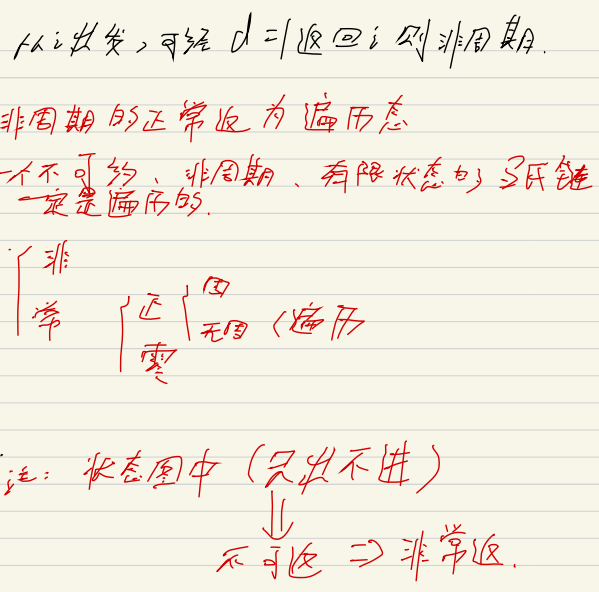 从i出发，可经d=1返回i则非周期.
非周期的正常返为遍历态
一个不可约、非周期、有限状态的马氏链
一定是遍历的.
{非
常 {正 {周
无周 (遍历
零
注: 状态图中 (只出不进)
⇓
不可返 ⇒ 非常返.